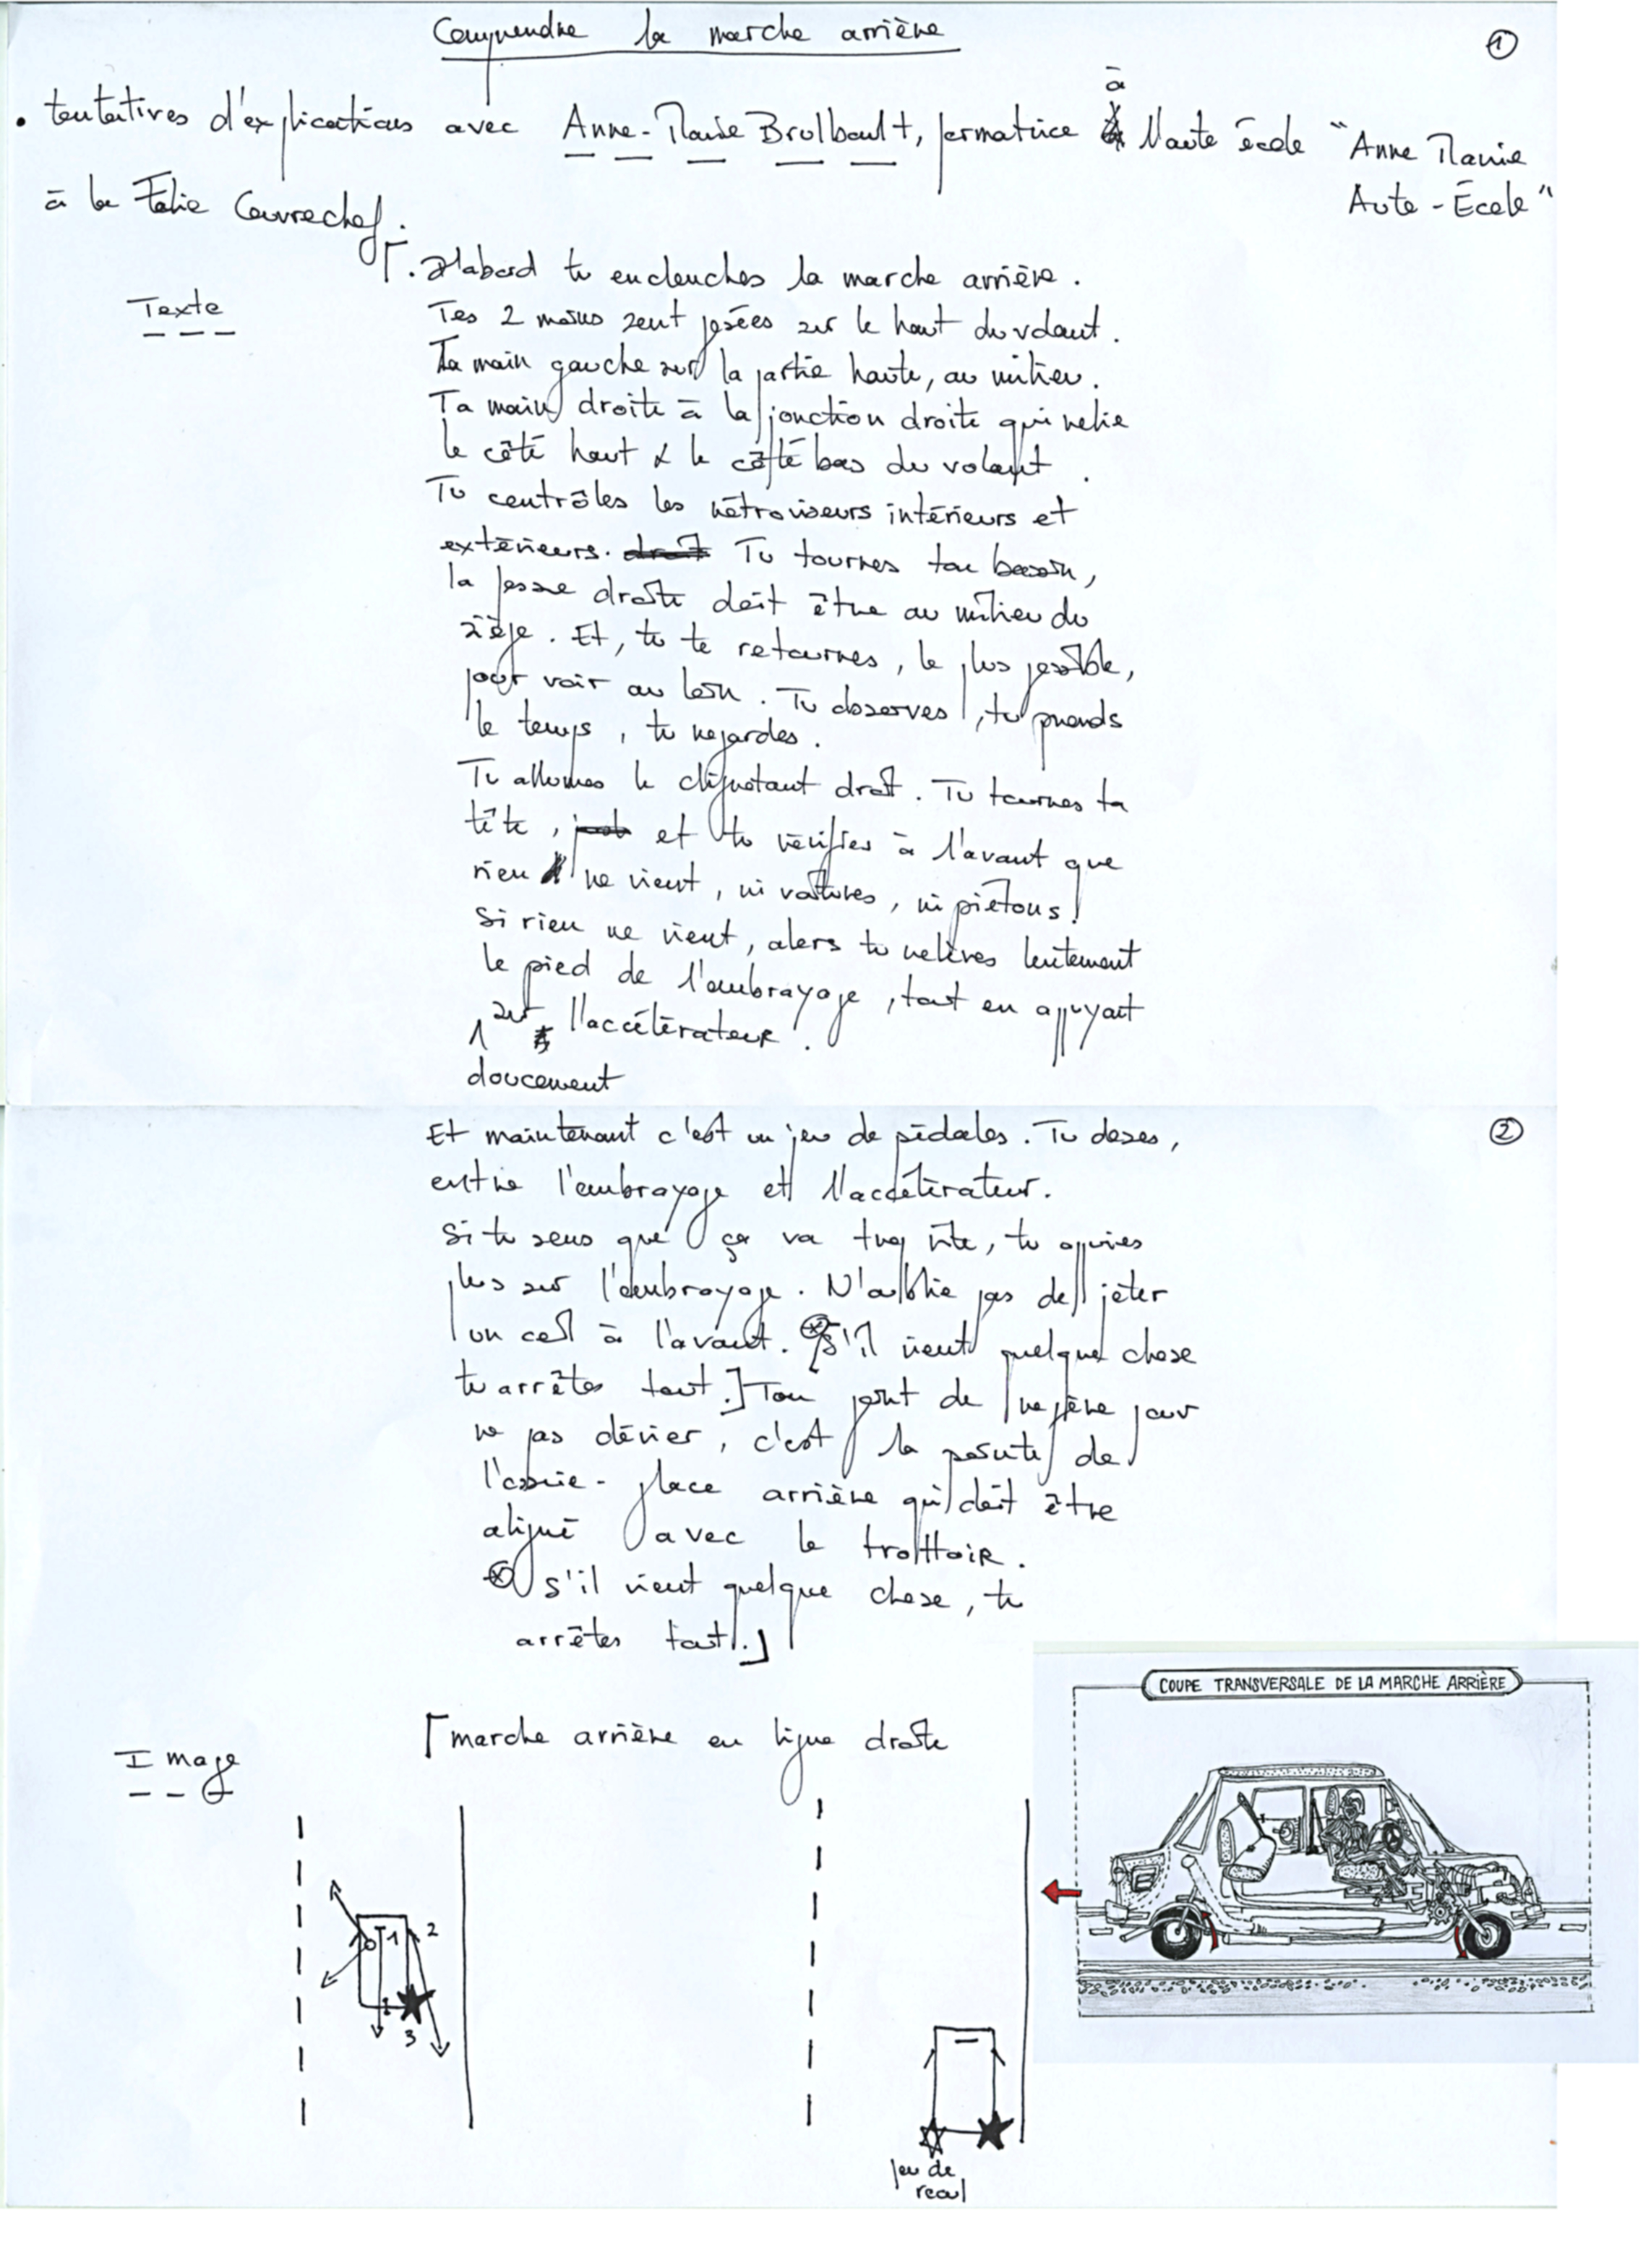 Comprendre la marche arrière
①
• tentatives d'explications avec Anne-Marie Brulbault, formatrice à l'auto école "Anne Marie
Auto-École"
à la Folie Couvrechef.
Texte
⌈. D'abord tu enclenches la marche arrière.
Tes 2 mains sont posées sur le haut du volant.
Ta main gauche sur la partie haute, au milieu.
Ta main droite à la jonction droite qui relie
le côté haut & le côté bas du volant.
Tu contrôles les rétroviseurs intérieurs et
extérieurs. droit Tu tournes ton bassin,
la fesse droite doit être au milieu du
siège. Et, tu te retournes, le plus possible,
pour voir au loin. Tu observes, tu prends
le temps, tu regardes.
Tu allumes le clignotant droit. Tu tournes ta
tête, et tu vérifies à l'avant que
rien ne vient, ni voitures, ni piétons!
Si rien ne vient, alors tu relèves lentement
le pied de l'embrayage, tout en appuyait
sur l'accélérateur.
doucement
Et maintenant c'est un jeu de pédales. Tu doses,
②
entre l'embrayage et l'accélérateur.
Si tu sens que ça va trop vite, tu appuies
plus sur l'embrayage. N'oublie pas de jeter
un œil à l'avant. ⊗ [S'il vient quelque chose
tu arrêtes tout.] Ton point de repère pour
ne pas dévier, c'est la pointe de
l'essuie-glace arrière qui doit être
aligné avec le trottoir.
⊗ s'il vient quelque chose, tu
arrêtes tout.⌋
Image
⌈marche arrière en ligne droite
1
2
3
feu de
recul
COUPE TRANSVERSALE DE LA MARCHE ARRIÈRE